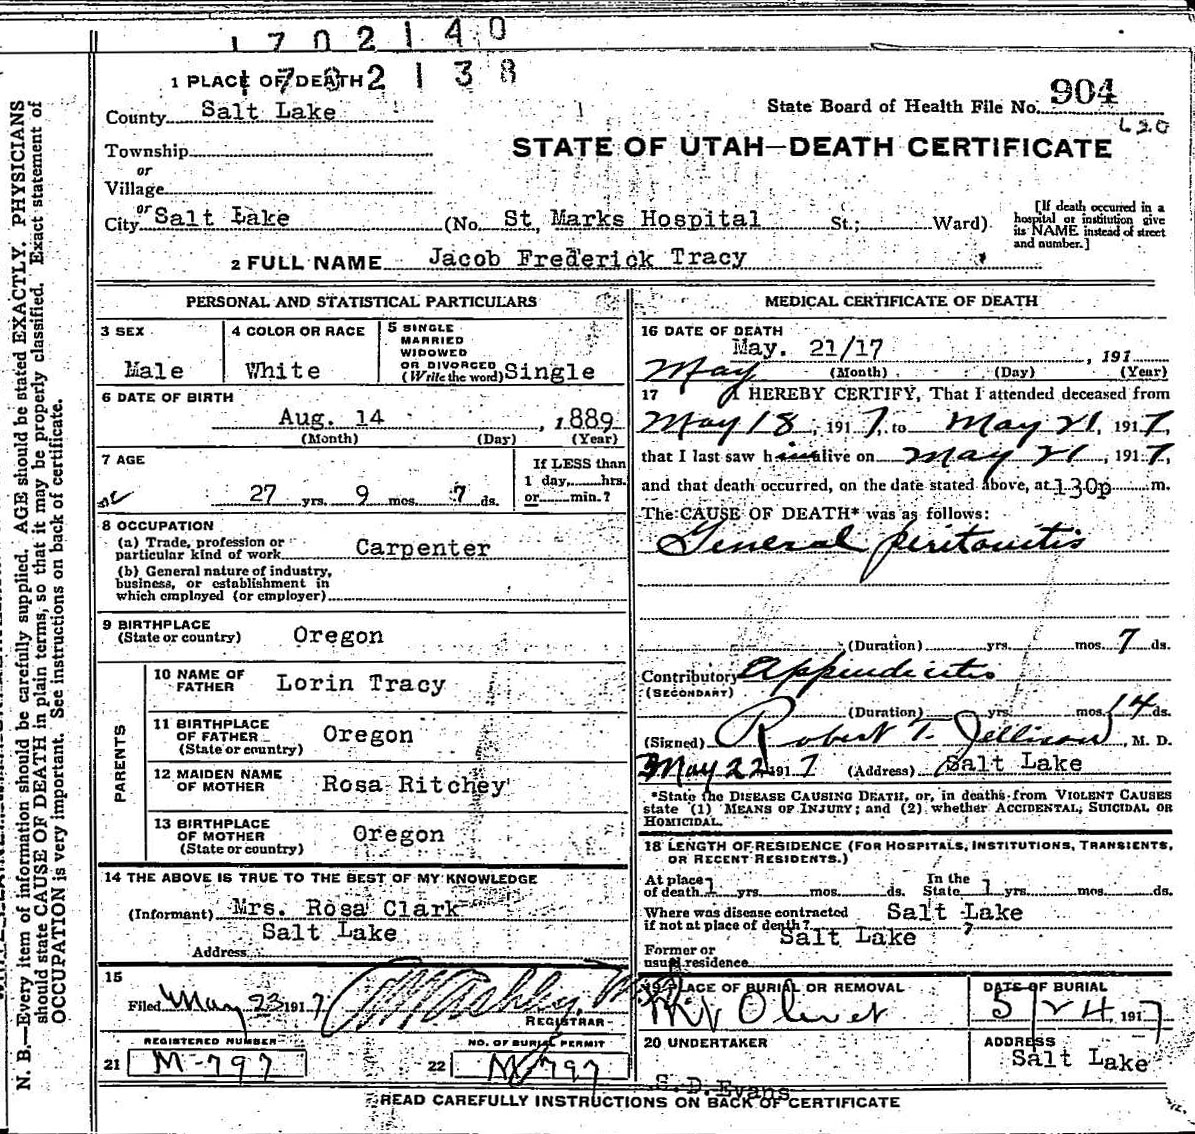 1702140
1702138
1 PLACE OF DEATH
State Board of Health File No. 904
County Salt Lake
620
STATE OF UTAH—DEATH CERTIFICATE
Township
or
Village
or
City Salt Lake (No. St. Marks Hospital St.; Ward)
[If death occurred in a hospital or institution give its NAME instead of street and number.]
2 FULL NAME Jacob Frederick Tracy
PERSONAL AND STATISTICAL PARTICULARS
3 SEX
Male
4 COLOR OR RACE
White
5 SINGLE
MARRIED
WIDOWED
OR DIVORCED
(Write the word) Single
6 DATE OF BIRTH
Aug. 14, 1889
(Month) (Day) (Year)
7 AGE
27 yrs. 9 mos. 7 ds.
If LESS than
1 day, hrs.
or min.?
8 OCCUPATION
(a) Trade, profession or
particular kind of work Carpenter
(b) General nature of industry,
business, or establishment in
which employed (or employer)
9 BIRTHPLACE
(State or country) Oregon
PARENTS
10 NAME OF
FATHER Lorin Tracy
11 BIRTHPLACE
OF FATHER
(State or country) Oregon
12 MAIDEN NAME
OF MOTHER Rosa Ritchey
13 BIRTHPLACE
OF MOTHER
(State or country) Oregon
14 THE ABOVE IS TRUE TO THE BEST OF MY KNOWLEDGE
(Informant) Mrs. Rosa Clark
Salt Lake
Address
15
Filed May 23 1917
REGISTRAR
REGISTERED NUMBER
21 M-797
NO. OF BURIAL PERMIT
22 M-797
MEDICAL CERTIFICATE OF DEATH
16 DATE OF DEATH
May. 21/17, 191
May (Month) (Day) (Year)
17 I HEREBY CERTIFY, That I attended deceased from
May 18, 1917, to May 21, 1917,
that I last saw him alive on May 21, 1917,
and that death occurred, on the date stated above, at 130p m.
The CAUSE OF DEATH* was as follows:
General peritonitis
(Duration) yrs. mos. 7 ds.
Contributory Appendicitis
(SECONDARY)
(Duration) yrs. mos. 14 ds.
(Signed) Robert T. Jellison, M. D.
May 22 1917 (Address) Salt Lake
*State the DISEASE CAUSING DEATH, or, in deaths from VIOLENT CAUSES
state (1) MEANS OF INJURY; and (2) whether ACCIDENTAL, SUICIDAL OR
HOMICIDAL.
18 LENGTH OF RESIDENCE (FOR HOSPITALS, INSTITUTIONS, TRANSIENTS,
OR RECENT RESIDENTS.)
At place
of death 1 yrs. mos. ds.
In the
State 1 yrs. mos. ds.
Where was disease contracted
if not at place of death? Salt Lake ?
Former or
usual residence Salt Lake
19 PLACE OF BURIAL OR REMOVAL
Mt Olivet
DATE OF BURIAL
5/24 1917
20 UNDERTAKER
S. D. Evans
ADDRESS
Salt Lake
READ CAREFULLY INSTRUCTIONS ON BACK OF CERTIFICATE
N. B.—Every item of information should be carefully supplied. AGE should be stated EXACTLY. PHYSICIANS
should state CAUSE OF DEATH in plain terms, so that it may be properly classified. Exact statement of
OCCUPATION is very important. See instructions on back of certificate.